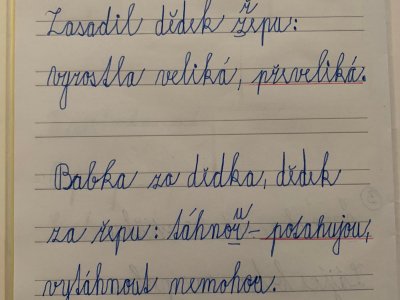 Zasadil dědek řepu:
vyrostla veliká, převeliká.
Babka za dědka, dědek
za řepu: táhnou - potahujou,
vytáhnout nemohou.